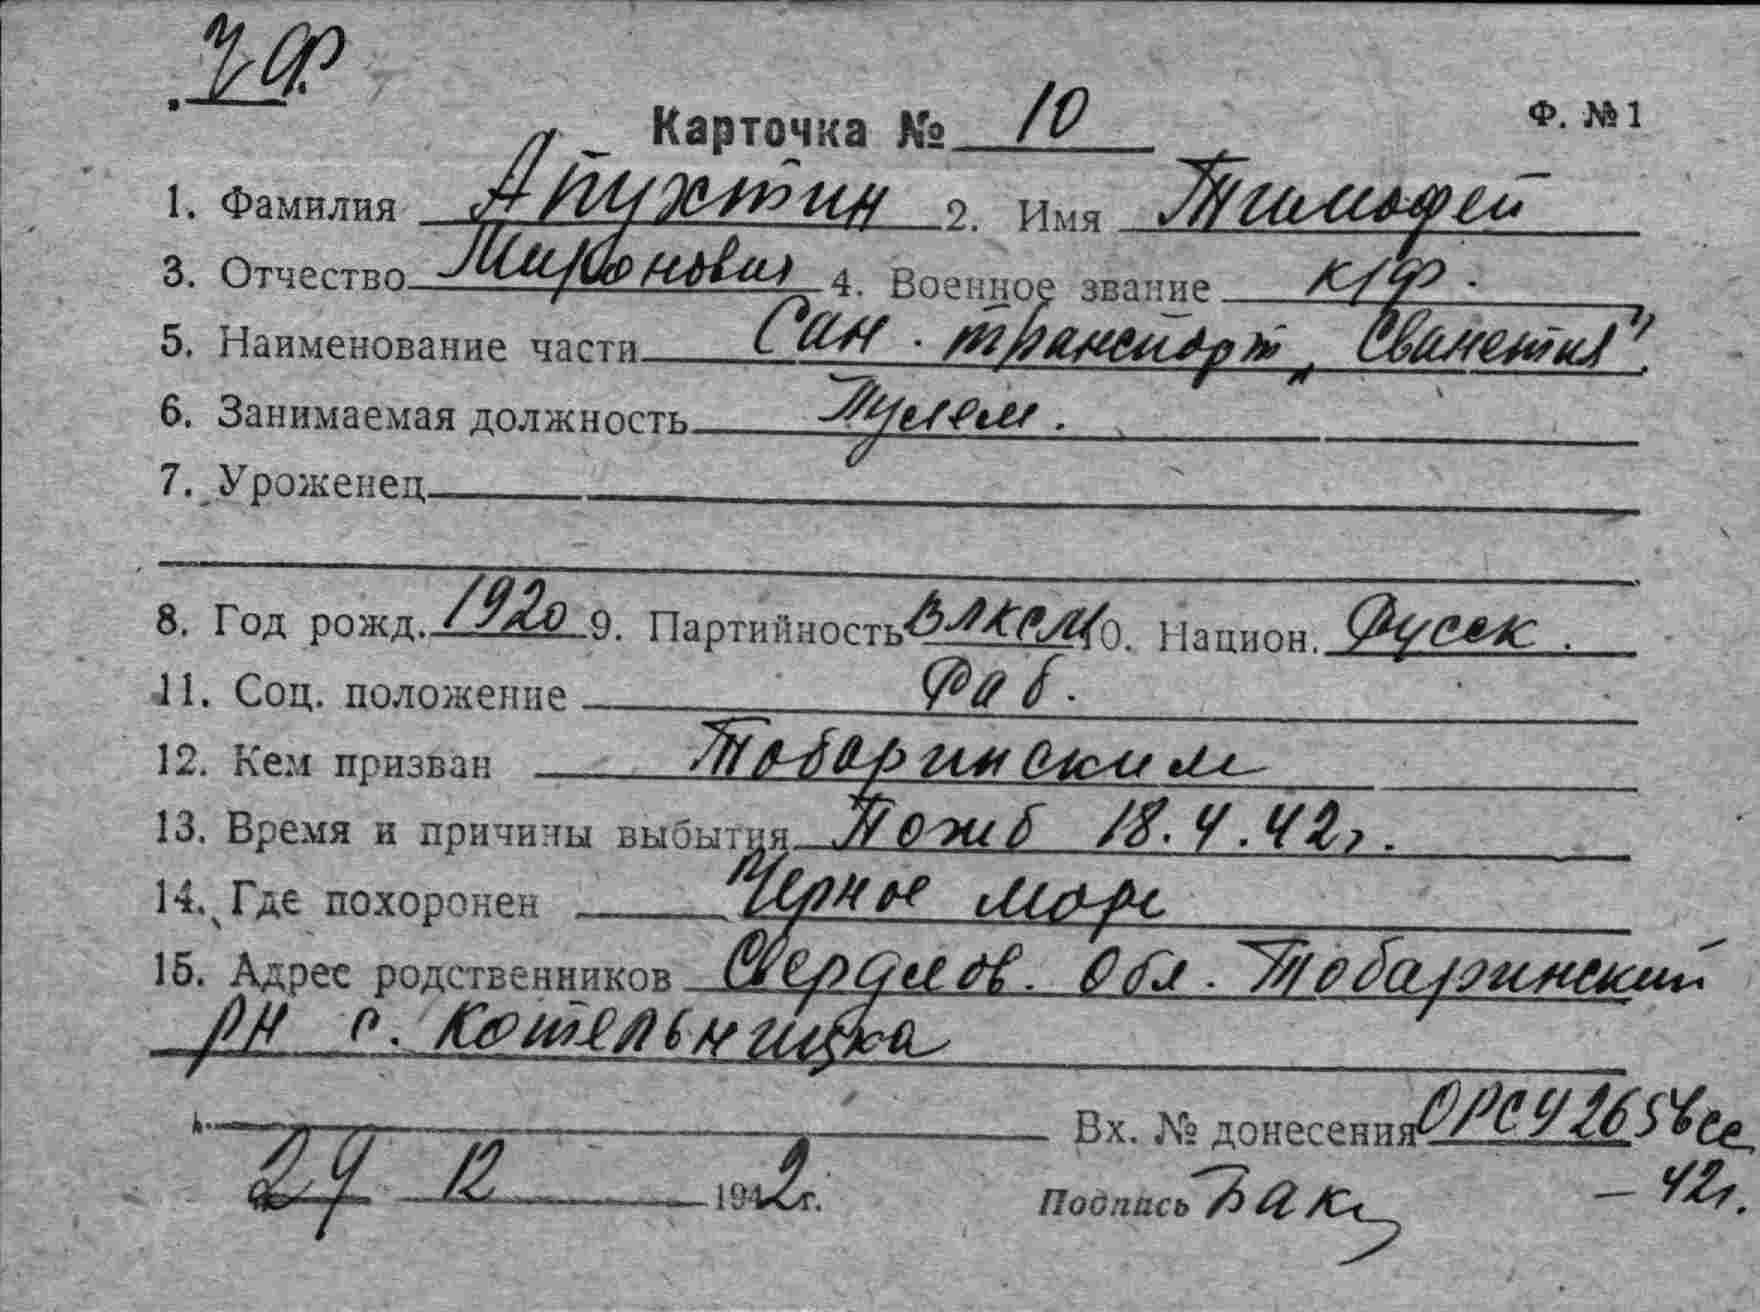 ЧФ.
Карточка № 10
Ф. №1
1. Фамилия Апухтин 2. Имя Тимофей
3. Отчество Миронович 4. Военное звание к/ф.
5. Наименование части Сан. транспорт „Сванетия".
6. Занимаемая должность Пулем.
7. Уроженец
8. Год рожд. 1920 9. Партийность ВЛКСМ 10. Национ. Русск.
11. Соц. положение Раб.
12. Кем призван Тобаринским
13. Время и причины выбытия Погиб 18.4.42г.
14. Где похоронен Черное море
15. Адрес родственников Свердлов. Обл. Тобаринский
рн с. Котельницка
Вх. № донесения ОРСУ 2656сс
– 42г.
29 12 1942г.
Подпись